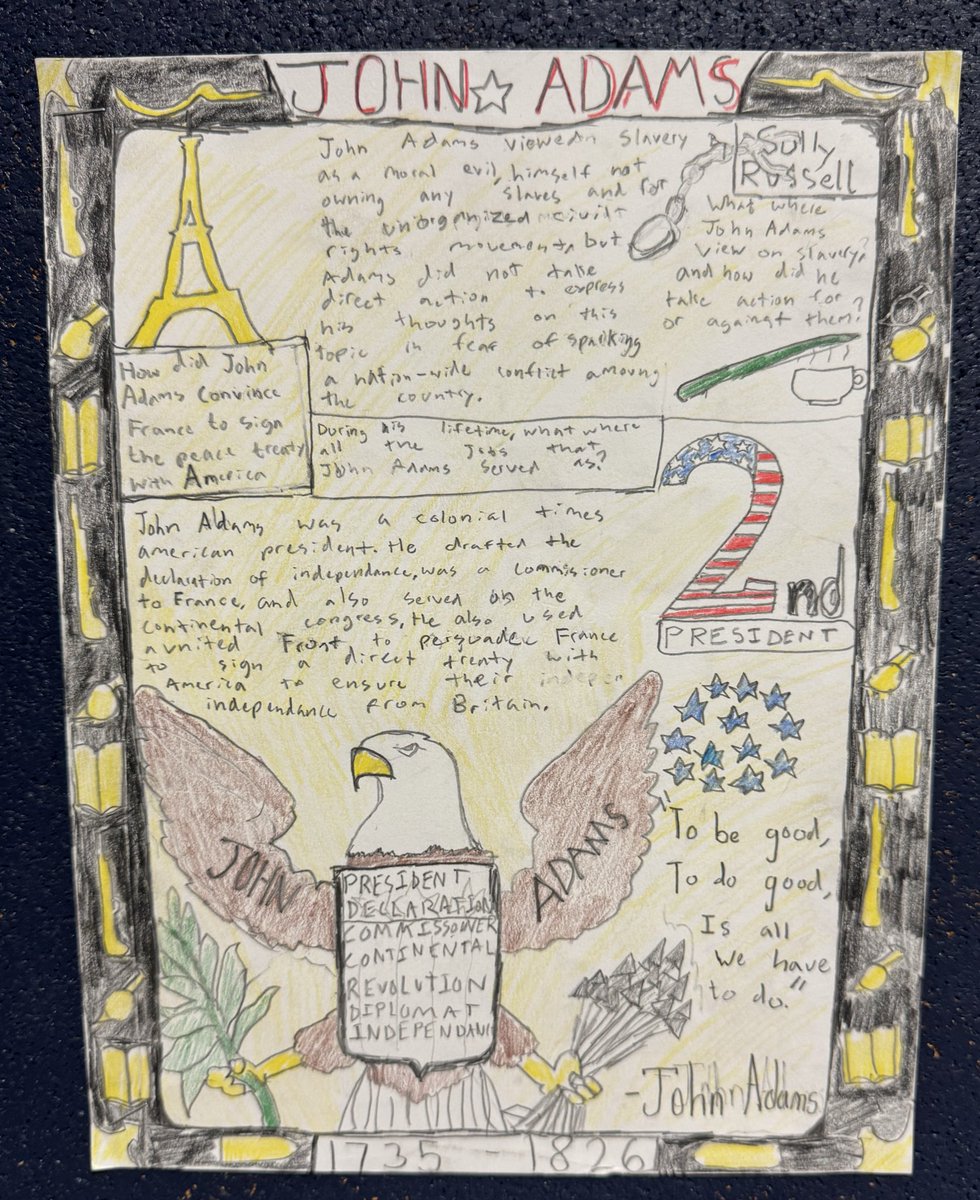 JOHN ADAMS
Sully
Russell
What where
John Adams
view on slavery?
and how did he
take action for
or against them?
John Adams viewed slavery
as a moral evil, himself not
owning any slaves and for
the unorganized civil
rights movement, but
Adams did not take
direct action to express
his thoughts on this
topic in fear of sparking
a nation-wide conflict amoung
the country.
How did John
Adams Convince
France to sign
the peace treaty
with America
During his lifetime, what where
all the Jobs that
John Adams served as?
John Adams was a colonial times
american president. He drafted the
declaration of independance, was a Commissioner
to France, and also served on the
continental congress, He also used
a united Front to persuade France
to sign a direct treaty with
America to ensure their
independance from Britain.
2nd
PRESIDENT
JOHN ADAMS
PRESIDENT
DECLARATION
COMMISSONER
CONTINENTAL
REVOLUTION
DIPLOMAT
INDEPENDANC
"To be good,
To do good,
Is all
we have
to do."
-John Adams
1735 1826